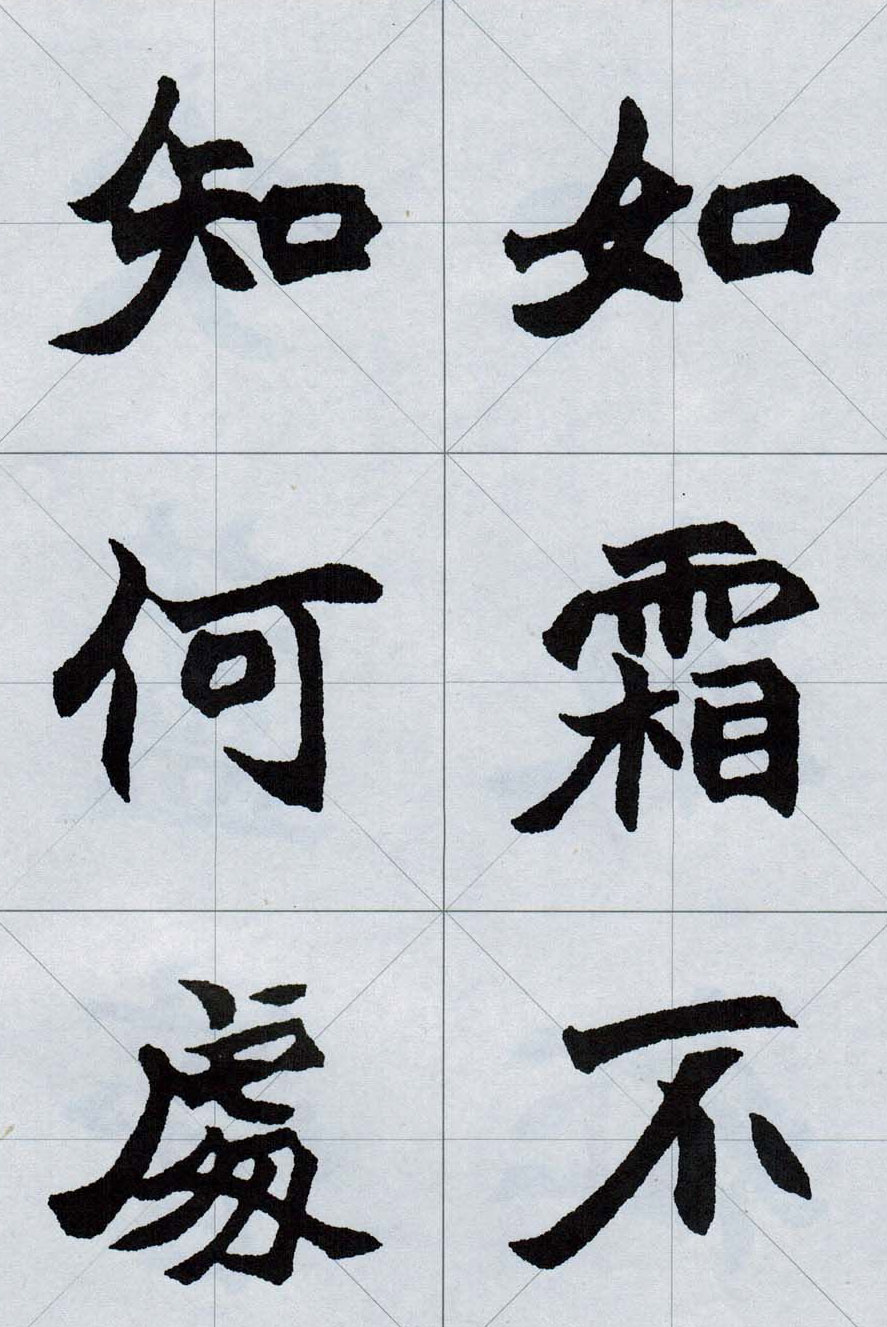 如霜不
知何處